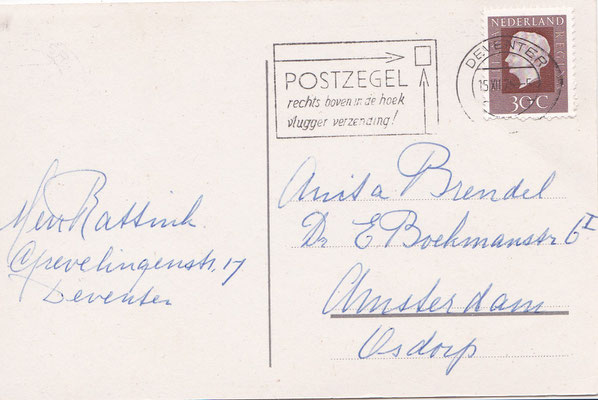 POSTZEGEL
rechts boven in de hoek
vlugger verzending!
NEDERLAND
30C
DEVENTER
15 XII
Mevr Rattink
Grevelingenstr. 17
Deventer
Anita Brendel
Dr E Boekmanstr 6 I
Amsterdam
Osdorp